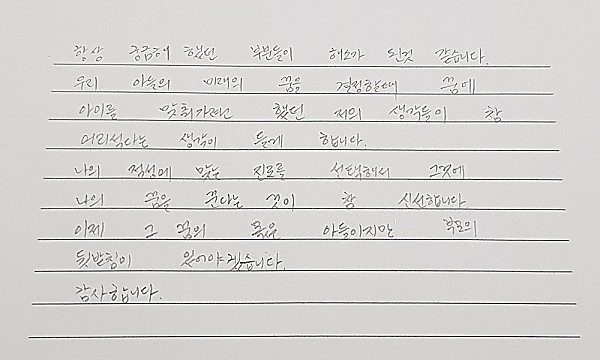 항상 궁금해 했던 부분들이 해소가 된것 같습니다.
우리 아들의 미래의 꿈을 결정할때 꿈에
아이를 맞춰가라고 했던 저의 생각들이 참
어리석다는 생각이 들게 합니다.
나의 적성에 맞는 진로를 선택해서 그것에
나의 꿈을 꾼다는 것이 참 신선합니다.
이제 그 꿈의 몫은 아들이지만 부모의
뒷받침이 있어야겠습니다.
감사합니다.